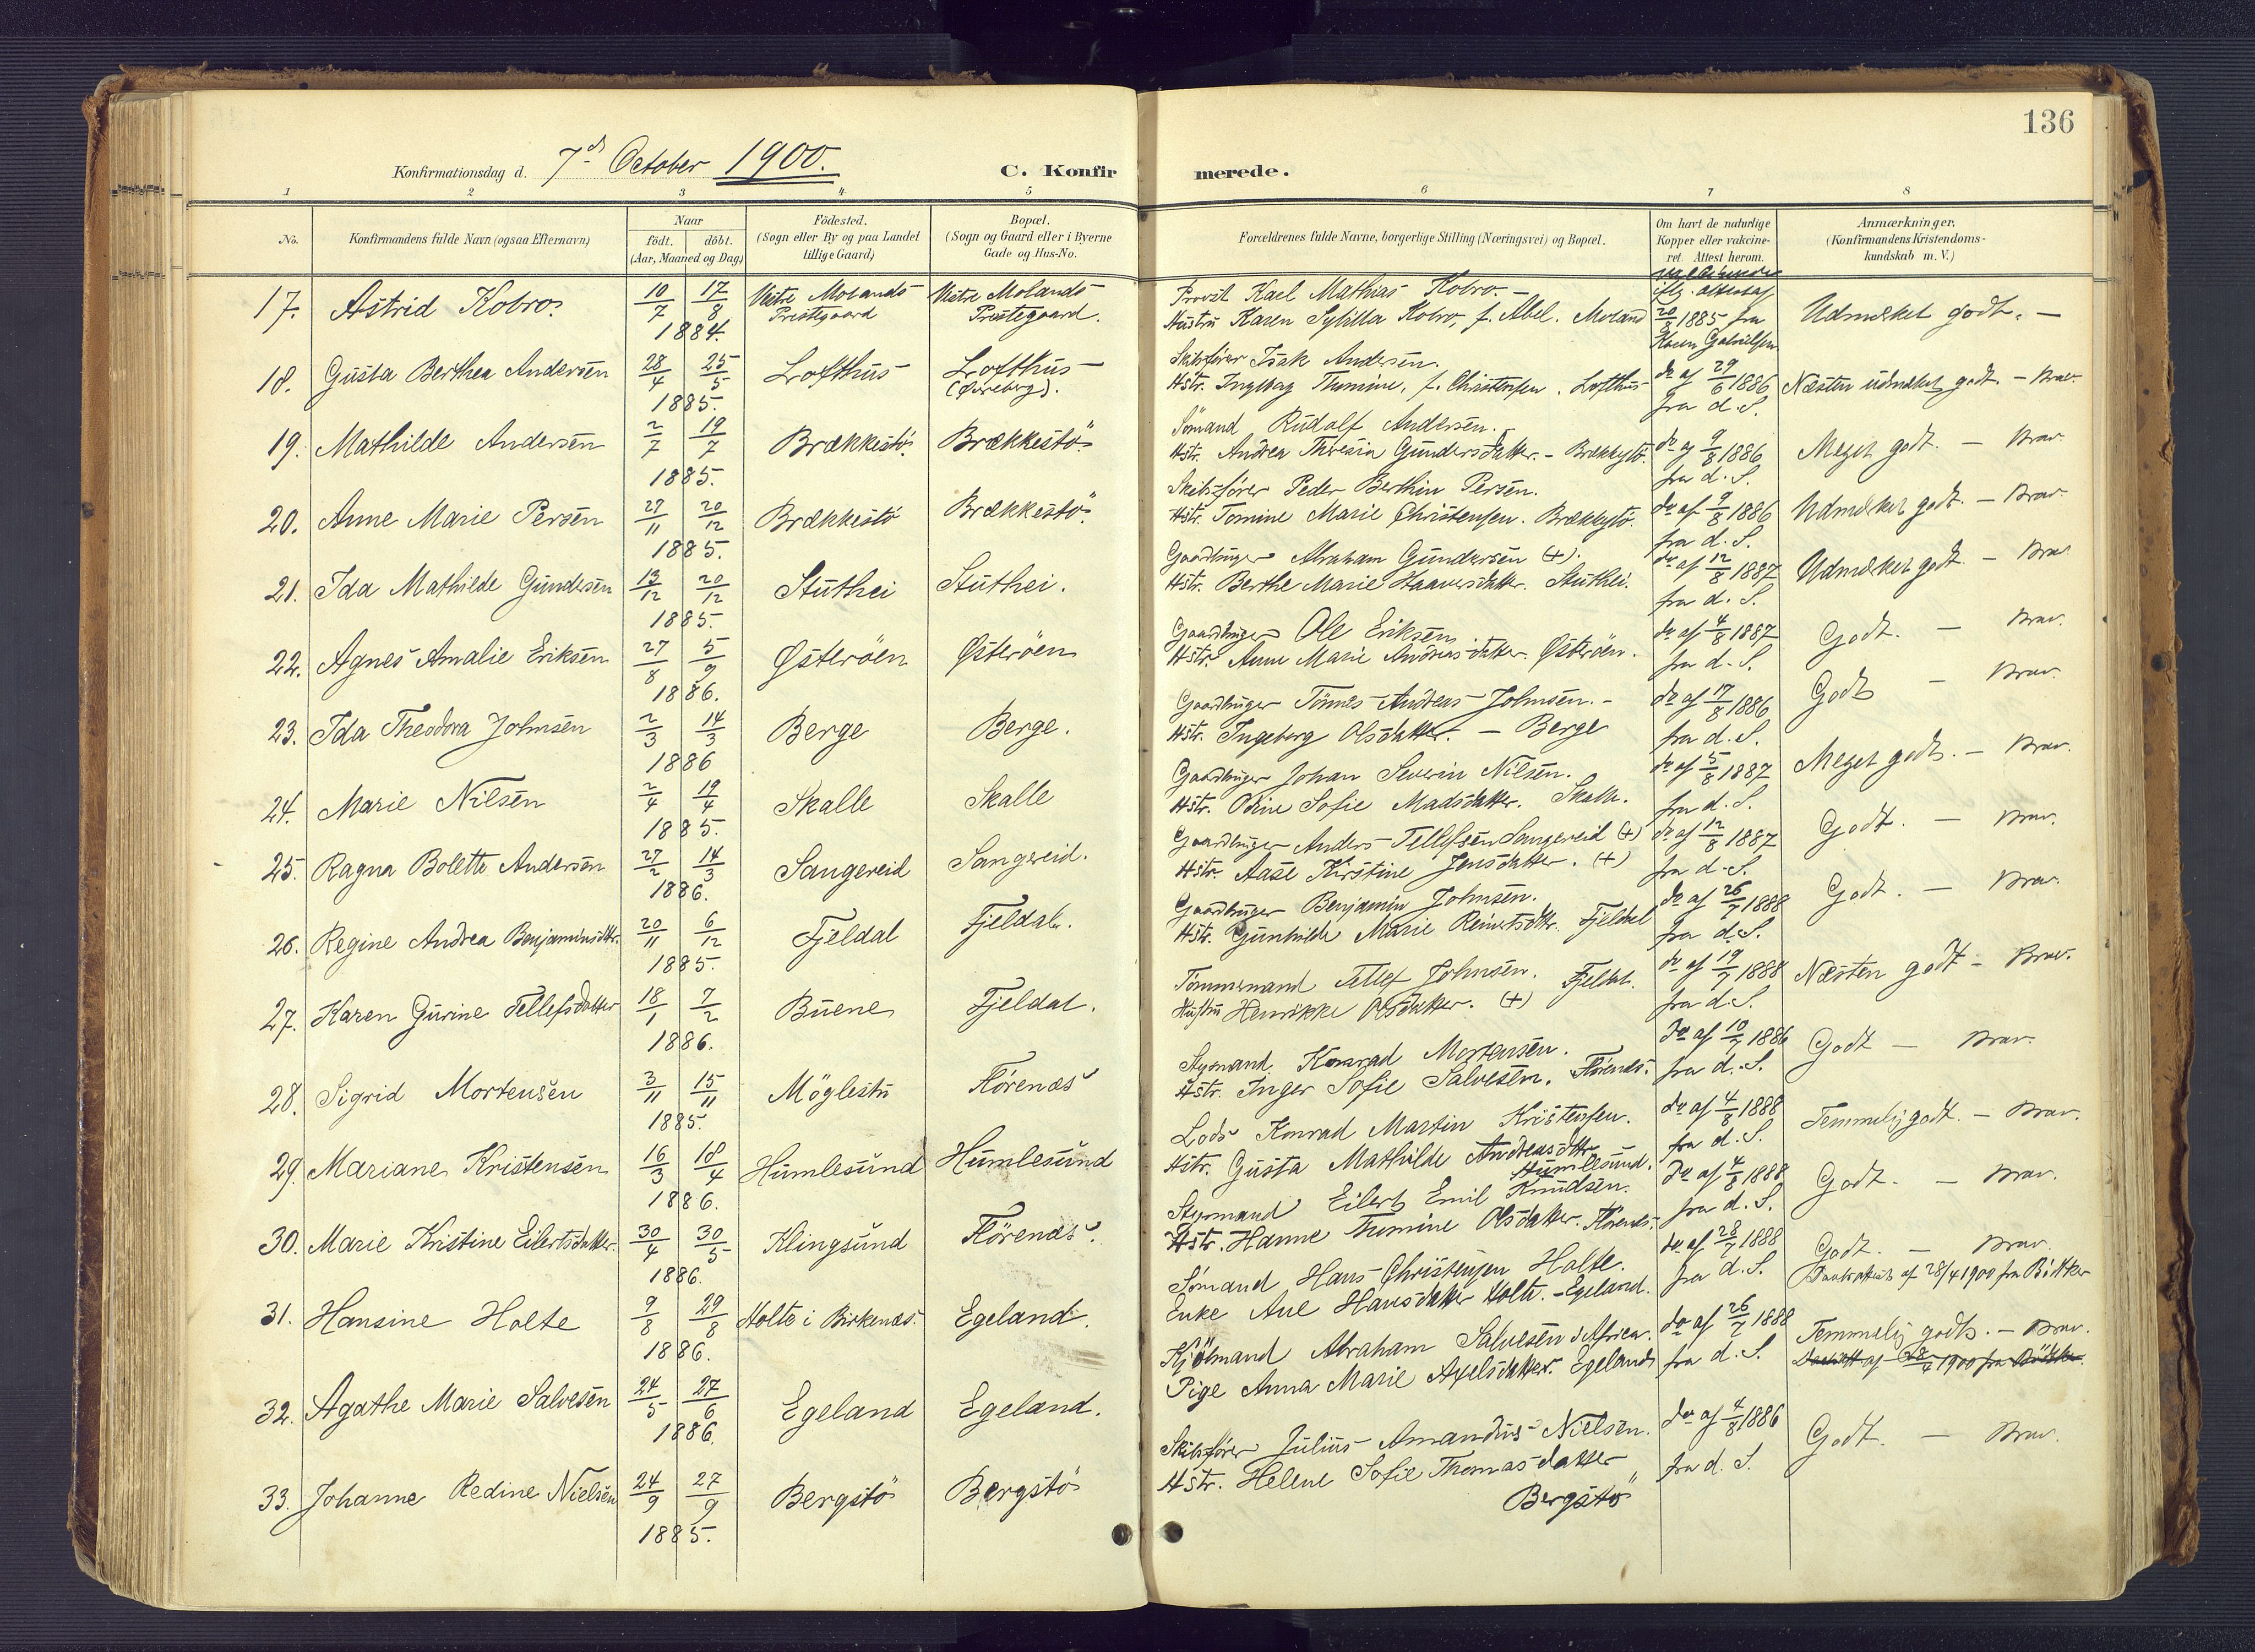 136
Konfirmationsdag d. 7d October 1900.
C. Konfirmerede.
1 2 3 4 5 6 7 8
No.
Konfirmandens fulde Navn (ogsaa Efternavn)
Naar
födt. döbt.
(Aar, Maaned og Dag)
Födested.
(Sogn eller By og paa Landet
tillige Gaard)
Bopæl.
(Sogn og Gaard eller i Byerne
Gade og Hus-No.
Forældrenes fulde Navne, borgerlige Stilling (Næringsvei) og Bopæl.
Om havt de naturlige
Kopper eller vakcine-
ret. Attest herom.
Anmærkninger,
(Konfirmandens Kristendoms-
kundskab m. V.)
17. Astrid Kobro. 10/7 17/8 1884. Vestre Molands Prestegaard Vestre Molands Prestegaard.
Provst Karl Mathias Kobro. –
Hustru Karen Sylilla Kobro, f. Abel. Moland
iflg. attest af 20/8 1885 fra
Udmærket godt. –
18. Gusta Berthea Andersen 28/4 25/5 1885. Lofthus Lofthus (Øvreberg).
Skibsfører Isak Andersen.
Hstr. Ingeborg Thomine, f. Christensen. Lofthus
do af 29/6 1886 fra d. S.
Næsten udmærket godt. – Brav.
19. Mathilde Andersen 2/7 19/7 1885. Brækkestö. Brækkestö.
Sömand Rudolf Andersen. –
Hstr. Andrea Theresia Gundersdatter. – Brækkestö.
do af 9/8 1886 fra d. S.
Meget godt. – Brav.
20. Anne Marie Persen 27/11 20/12 1885. Brækkestö Brækkestö.
Skibsfører Peder Berthin Persen.
Hstr. Tomine Marie Christensen. Brækkestö.
do af 9/8 1886 fra d. S.
Udmærket godt. – Brav.
21. Ida Mathilde Gundersen 13/12 20/12 1885. Stuthei Stuthei.
Gaardbruger Abraham Gundersen (+).
Hstr. Berthe Marie Haaversdatter. Stuthei.
do af 12/8 1887 fra d. S.
Udmærket godt – Brav
22. Agnes Amalie Eriksen 27/8 5/9 1886. Østeröen Østeröen
Gaardbruger Ole Eriksen.
Hstr. Anne Marie Andreasdatter. Østeröen.
do af 4/8 1887 fra d. S.
Godt. – Brav.
23. Ida Theodora Johnsen 2/3 14/3 1886 Berge Berge.
Gaardbruger Tönnes Andreas Johnsen. –
Hstr. Ingeborg Olsdatter. – Berge
do af 17/8 1886 fra d. S.
Godt – Brav.
24. Marie Nilsen 2/4 19/4 1885. Skalle Skalle
Gaardbruger Johan Severin Nilsen.
Hstr. Oline Sofie Madsdatter. Skalle.
do af 5/8 1887 fra d. S.
Meget godt. – Brav.
25. Ragna Bolette Andersen 27/2 14/3 1886. Sangereid Sangereid.
Gaardbruger Anders Tellefsen Sangereid (+)
Hstr. Aase Kirstine Jensdatter. (+)
do af 12/8 1887 fra d. S.
Godt. – Brav.
26. Regine Andrea Benjaminsdtr. 20/11 6/12 1885. Fjeldal Fjeldal.
Gaardbruger Benjamin Johnsen.
Hstr. Gunhilde Marie Reinertsdtr. Fjeldal
do af 26/7 1888 fra d. S.
Godt. – Brav.
27. Karen Gurine Tellefsdatter 18/1 7/2 1886. Buene Fjeldal.
Tömmermand Tellef Johnsen. Fjeldal.
Hustru Henrikke Olsdatter. (+)
do af 19/7 1888 fra d. S.
Næsten godt – Brav.
28. Sigrid Mortensen 3/11 15/11 1885. Möglestu Flörenæs
Styrmand Konrad Mortensen.
Hstr. Inger Sofie Salvesen. Flörenæs.
do af 10/7 1886 fra d. S.
Godt – Brav.
29. Mariane Kristensen 16/3 18/4 1886. Humlesund Humlesund
Lods Konrad Martin Kristensen.
Hstr. Gusta Mathilde Andreasdtr. Humlesund.
do af 4/8 1888 fra d. S.
Temmelig godt. – Brav.
30. Marie Kristine Eilertsdatter. 30/4 30/5 1886. Klingsund Flörenæs.
Styrmand Eilert Emil Knudsen.
Hstr. Hanne Thomine Olsdatter. Flörenæs.
do af 4/8 1888 fra d. S.
Godt. – Brav.
31. Hansine Holte 9/8 29/8 1886. Holte i Birkenæs. Egeland.
Sömand Hans Christensen Holte.
Enke Ane Hansdatter Holte. – Egeland.
do af 28/7 1888 fra d. S.
Godt. – Brav.
Daabsattest af 28/4 1900 fra Böttker
32. Agathe Marie Salvesen 24/5 27/6 1886. Egeland Egeland.
Kjölmand Abraham Salvesen i Africa.
Pige Anna Marie Axelsdatter. Egeland
do af 26/7 1888 fra d. S.
Temmelig godt. – Brav.
Daabsatt af 28/4 1900 fra Böttker.
33. Johanne Redine Nielsen 24/9 27/9 1885. Bergstö Bergstö
Skibsfører Julius Amandus Nielsen.
Hstr. Helene Sofie Thomasdatter
Bergstö
do af 4/8 1886 fra d. S.
Godt. – Brav.